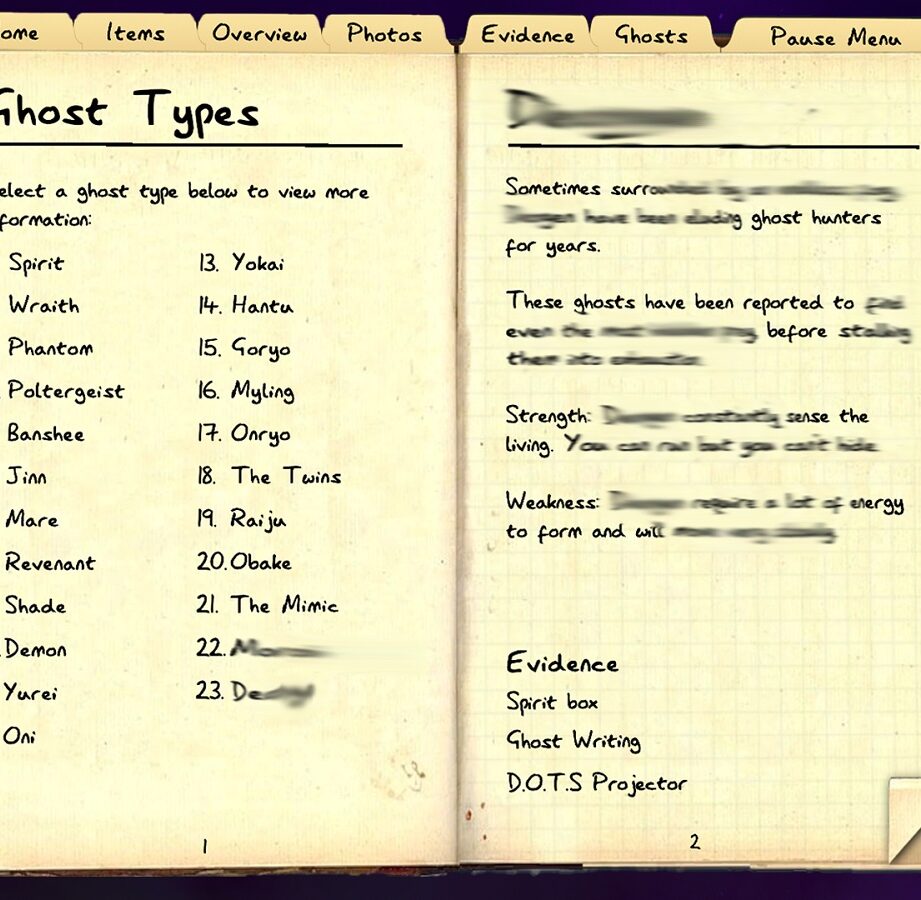 ome Items Overview Photos Evidence Ghosts Pause Menu
Ghost Types
elect a ghost type below to view more
formation:
Spirit
Wraith
Phantom
Poltergeist
Banshee
Jinn
Mare
Revenant
Shade
Demon
Yurei
Oni
13. Yokai
14. Hantu
15. Goryo
16. Myling
17. Onryo
18. The Twins
19. Raiju
20. Obake
21. The Mimic
22.
23.
1
Sometimes
have been eluding ghost hunters
for years.
These ghosts have been reported to
even the before stalking
Strength: constantly sense the
living. You can run but you can't hide.
Weakness: require a lot of energy
to form and will
Evidence
Spirit box
Ghost Writing
D.O.T.S Projector
2